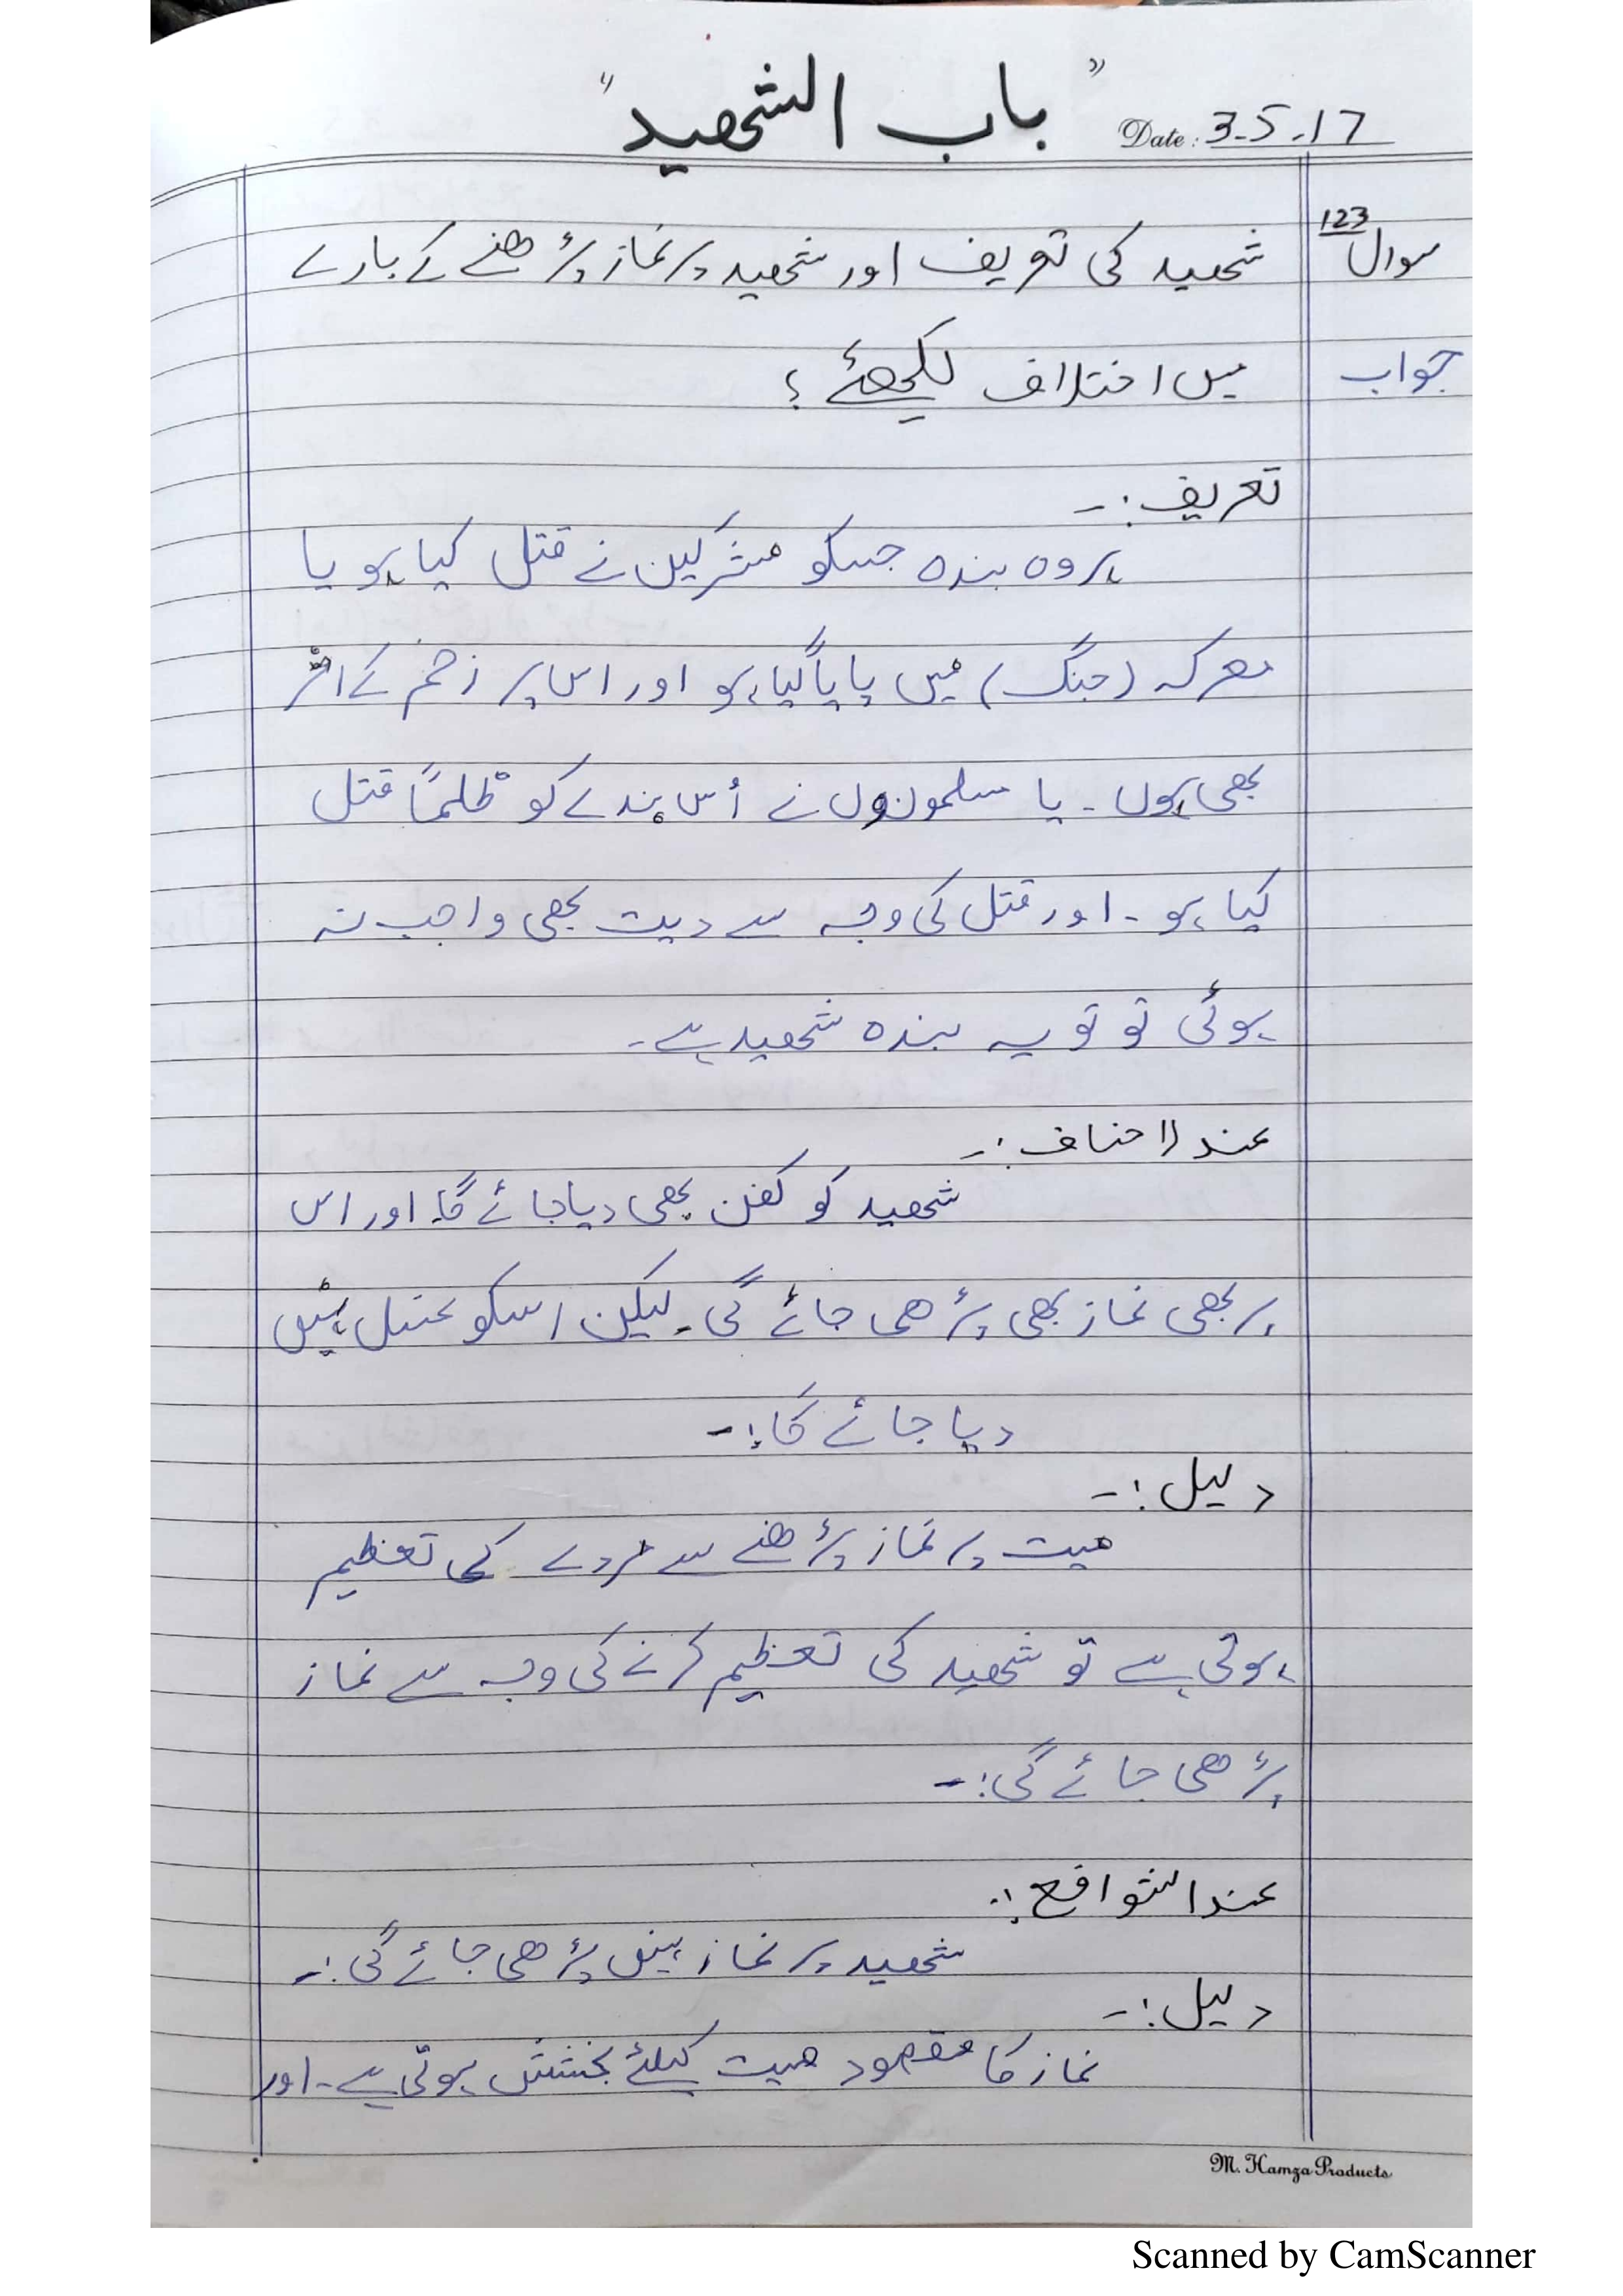 "باب الشھید"
Date: 3-5-17
سوال 123 شھید کی تعریف اور شھید پر نماز پڑھنے کے بارے
جواب میں اختلاف لکھئے؟
تعریف:-
ہر وہ بندہ جسکو مشرکین نے قتل کیا ہو یا
معرکہ (جنگ) میں پایا گیا ہو اور اس پر زخم کے اثر
بھی ہوں۔ یا مسلمونوں نے اُس بندے کو ظلمًا قتل
کیا ہو۔ اور قتل کی وجہ سے دیت بھی واجب نہ
ہوئی تو تو یہ بندہ شھید ہے۔
عند الاحناف:-
شھید کو کفن بھی دیا جائے گا۔ اور اس
پر بھی نماز بھی پڑھی جائے گی۔ لیکن اسکو غسل نہیں
دیا جائے گا:-
دلیل:-
میت پر نماز پڑھنے سے مردے کی تعظیم
ہوتی ہے تو شھید کی تعظیم کرنے کی وجہ سے نماز
پڑھی جائے گی:-
عند الشوافع:-
شھید پر نماز نہیں پڑھی جائے گی:-
دلیل:-
نماز کا مقصود میت کیلئے بخشش ہوتی ہے۔ اور
M. Hamza Products
Scanned by CamScanner